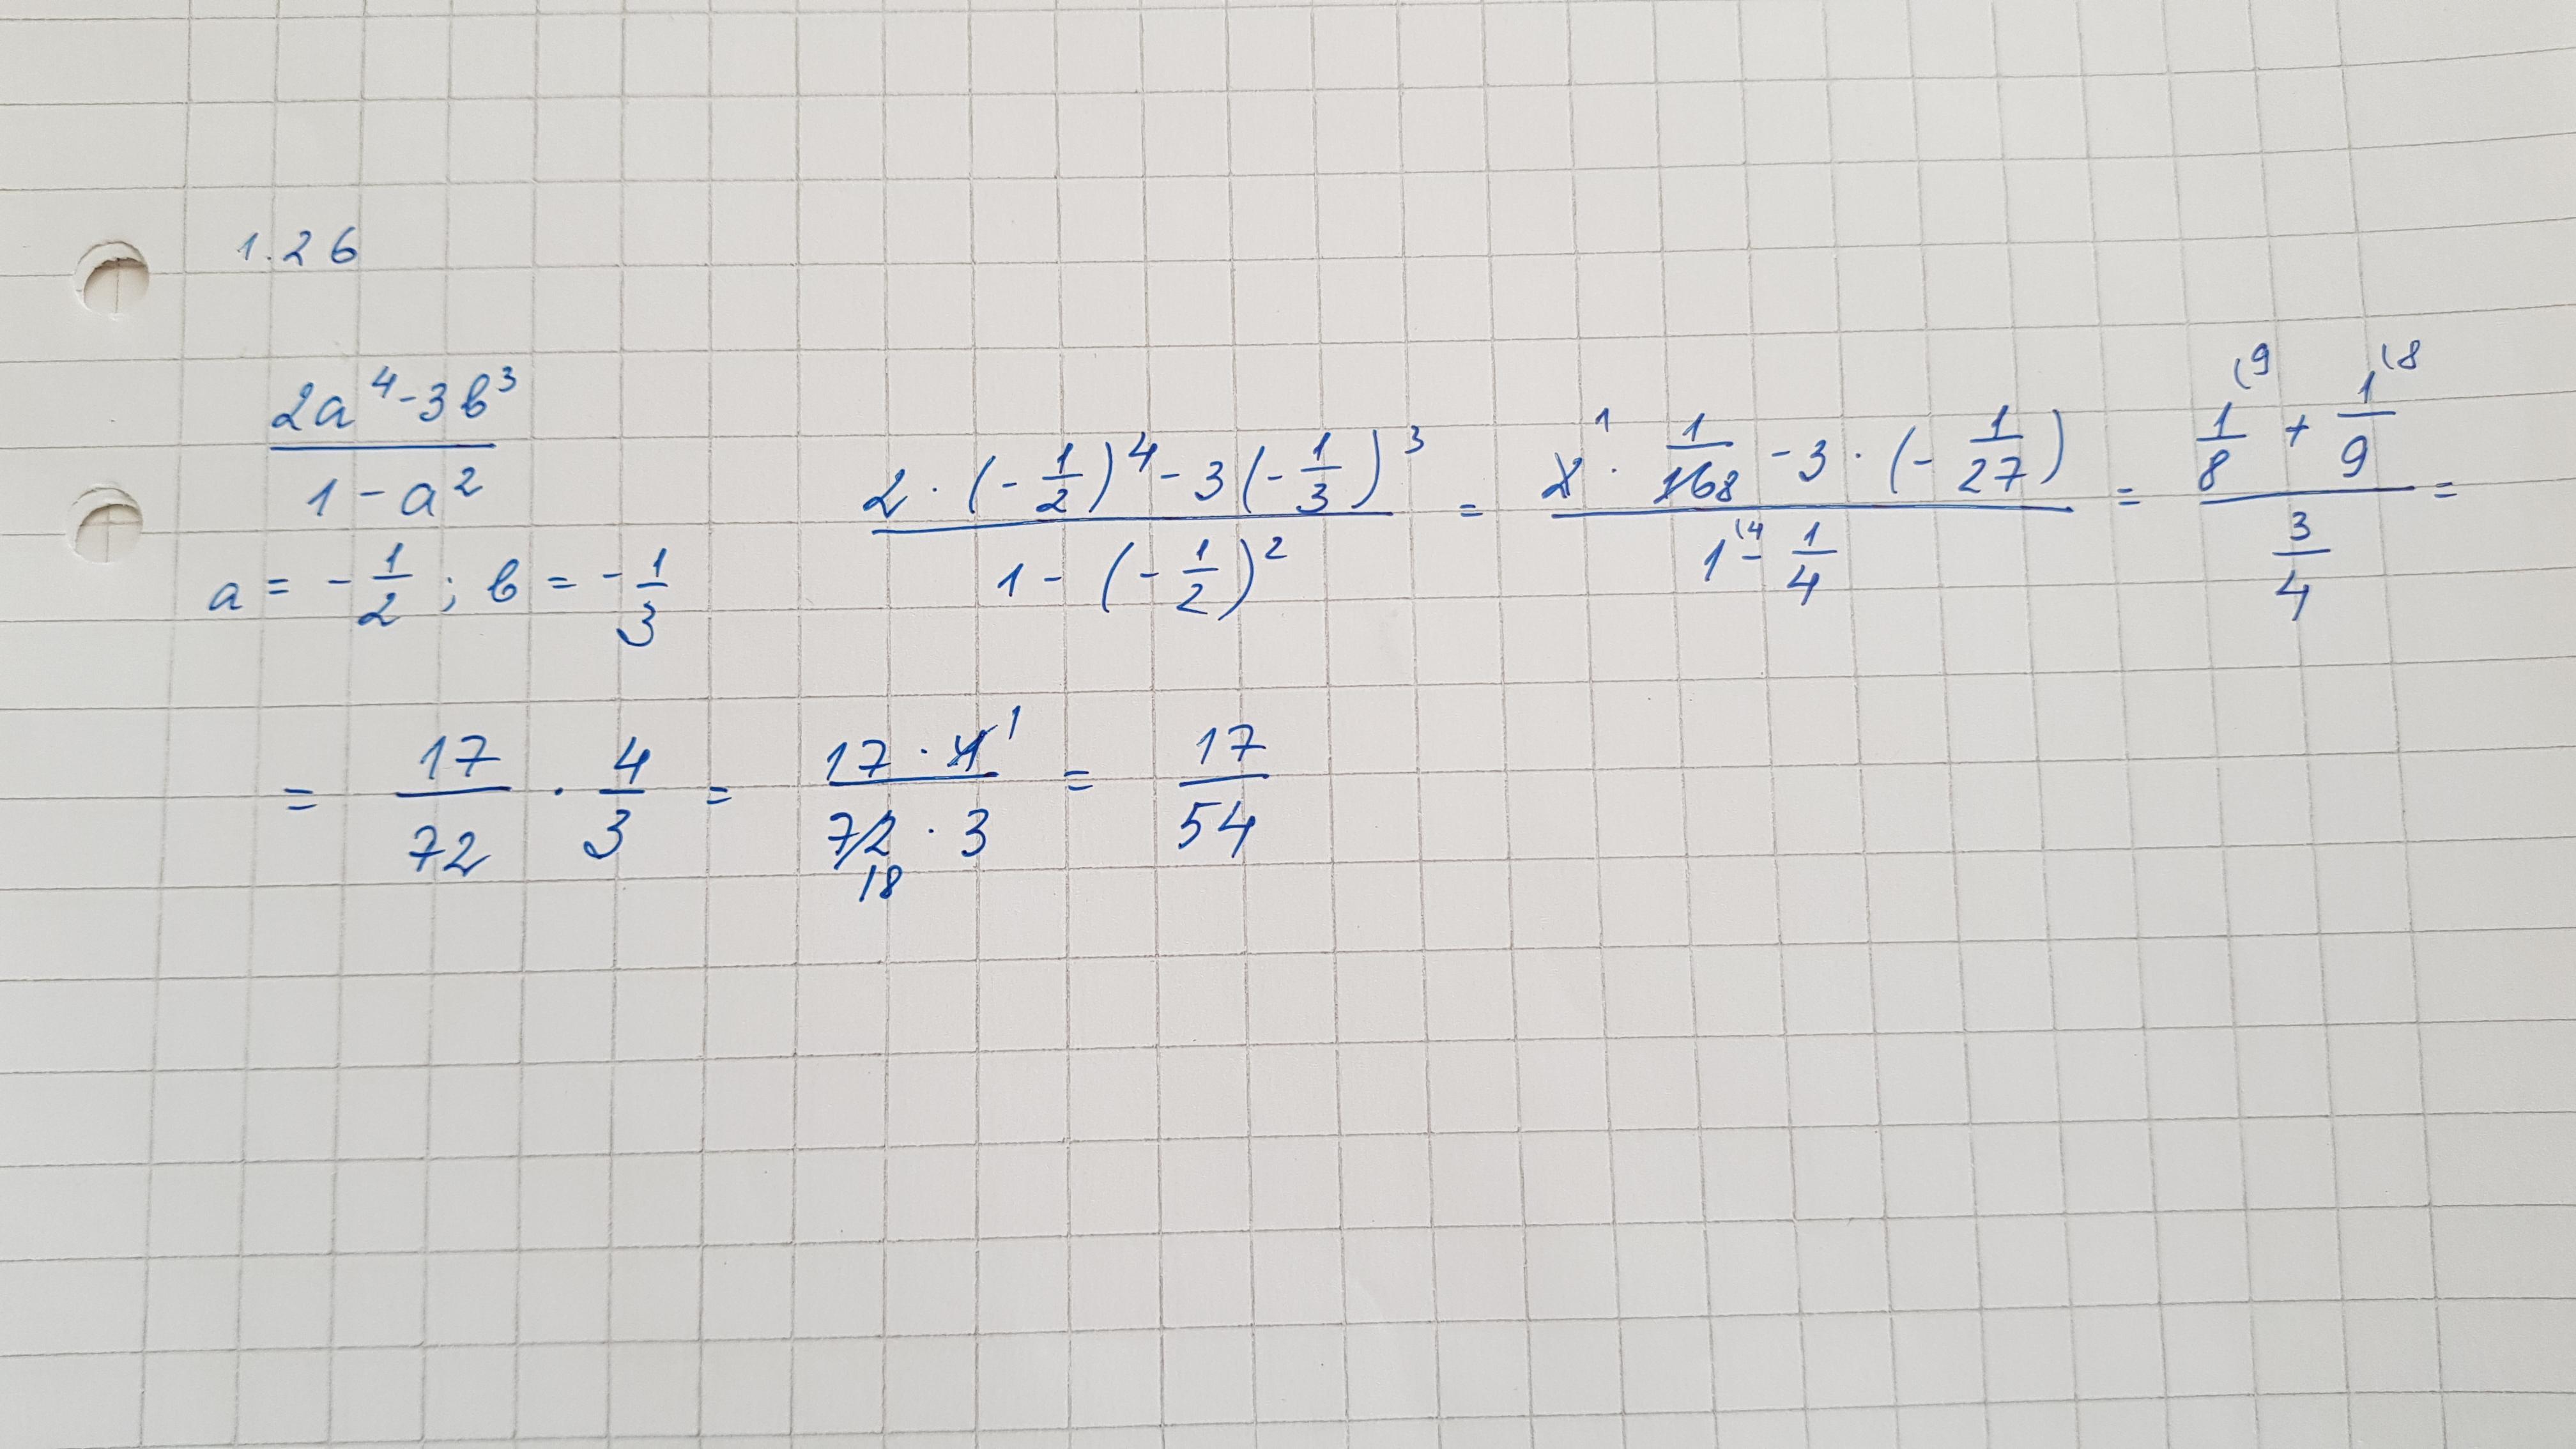 1.26
(2a⁴-3b³)/(1-a²)
a = -1/2; b = -1/3
(2·(-1/2)⁴-3(-1/3)³)/(1-(-1/2)²) = (2¹·1/168-3·(-1/27))/(1⁽⁴-1/4) = (1/8⁽⁹+1/9⁽⁸)/(3/4) =
= 17/72 · 4/3 = (17·4¹)/(72·3) = 17/54
18